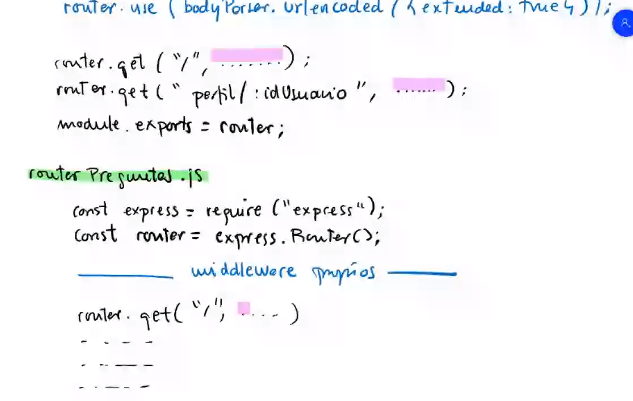 router.use (bodyParser.urlencoded ({extended: true}));
router.get ("/", ........);
router.get (" perfil/:idUsuario ", .......);
module.exports = router;
router Preguntas.js
const express = require ("express");
const router = express.Router();
middleware propios
router.get( "/", .... )